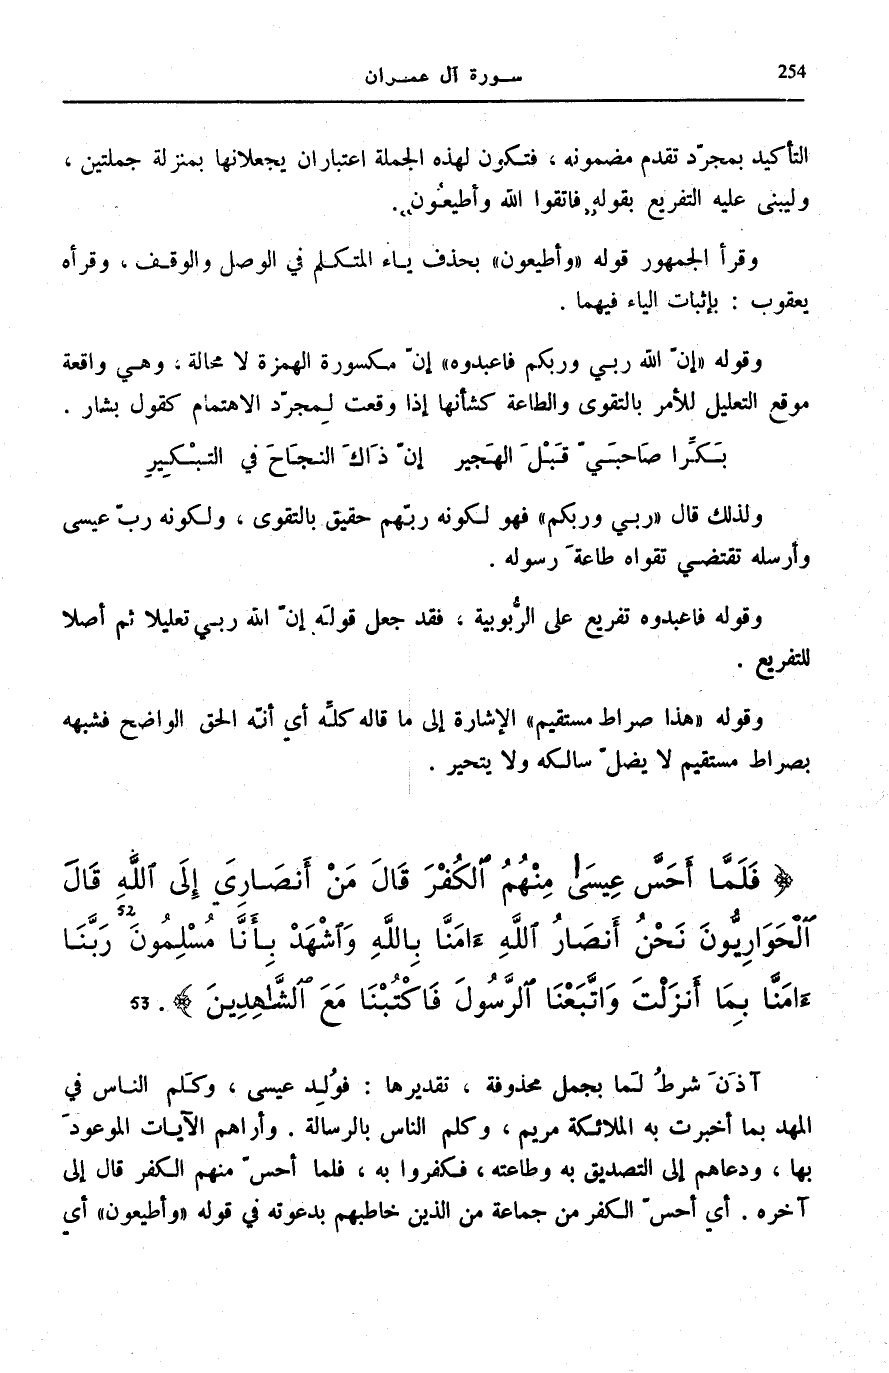 254
سورة آل عمران
التأكيد بمجرّد تقدم مضمونه ، فتكون لهذه الجملة اعتباران يجعلانها بمنزلة جملتين ،
وليبنى عليه التفريع بقوله «فاتقوا الله وأطيعُون».
وقرأ الجمهور قوله «وأطيعون» بحذف ياء المتكلم في الوصل والوقف ، وقرأه
يعقوب : بإثبات الياء فيهما .
وقوله «إنّ الله ربي وربكم فاعبدوه» إنّ مكسورة الهمزة لا محالة ، وهي واقعة
موقع التعليل للأمر بالتقوى والطاعة كشأنها إذا وقعت لمجرّد الاهتمام كقول بشار .
بَكِّرا صَاحبَيّ قَبْلَ الهَجير إنّ ذَاكَ النجَاحَ في التبْكِيرِ
ولذلك قال «ربي وربكم» فهو لكونه ربّهم حقيق بالتقوى ، ولكونه ربّ عيسى
وأرسله تقتضي تقواه طاعةَ رسوله .
وقوله فاعبدوه تفريع على الرُّبوبية ، فقد جعل قولَه إنّ الله ربي تعليلا ثم أصلا
للتفريع .
وقوله «هذا صراط مستقيم» الإشارة إلى ما قاله كلَّه أي أنّه الحق الواضح فشبهه
بصراط مستقيم لا يضلّ سالكه ولا يتحير .
﴿ فَلَمَّا أَحَسَّ عِيسَىٰ مِنْهُمُ ٱلْكُفْرَ قَالَ مَنْ أَنصَارِي إِلَى ٱللَّهِ قَالَ
ٱلْحَوَارِيُّونَ نَحْنُ أَنصَارُ ٱللَّهِ ءَامَنَّا بِاللَّهِ وَٱشْهَدْ بِأَنَّا مُسْلِمُونَ 52 رَبَّنَا
ءَامَنَّا بِمَا أَنزَلْتَ وَاتَّبَعْنَا ٱلرَّسُولَ فَاكْتُبْنَا مَعَ ٱلشَّٰهِدِينَ ﴾ . 53
آذَنَ شرطُ لَما بجمل محذوفة ، تقديرها : فوُلِد عيسى ، وكَلم الناس في
المهد بما أخبرت به الملائكة مريم ، وكلم الناس بالرسالة . وأراهم الآيات الموعودَ
بها ، ودعاهم إلى التصديق به وطاعته ، فكفروا به ، فلما أحسّ منهم الكفر قال إلى
آخره . أي أحسّ الكفر من جماعة من الذين خاطبهم بدعوته في قوله «وأطيعون» أي